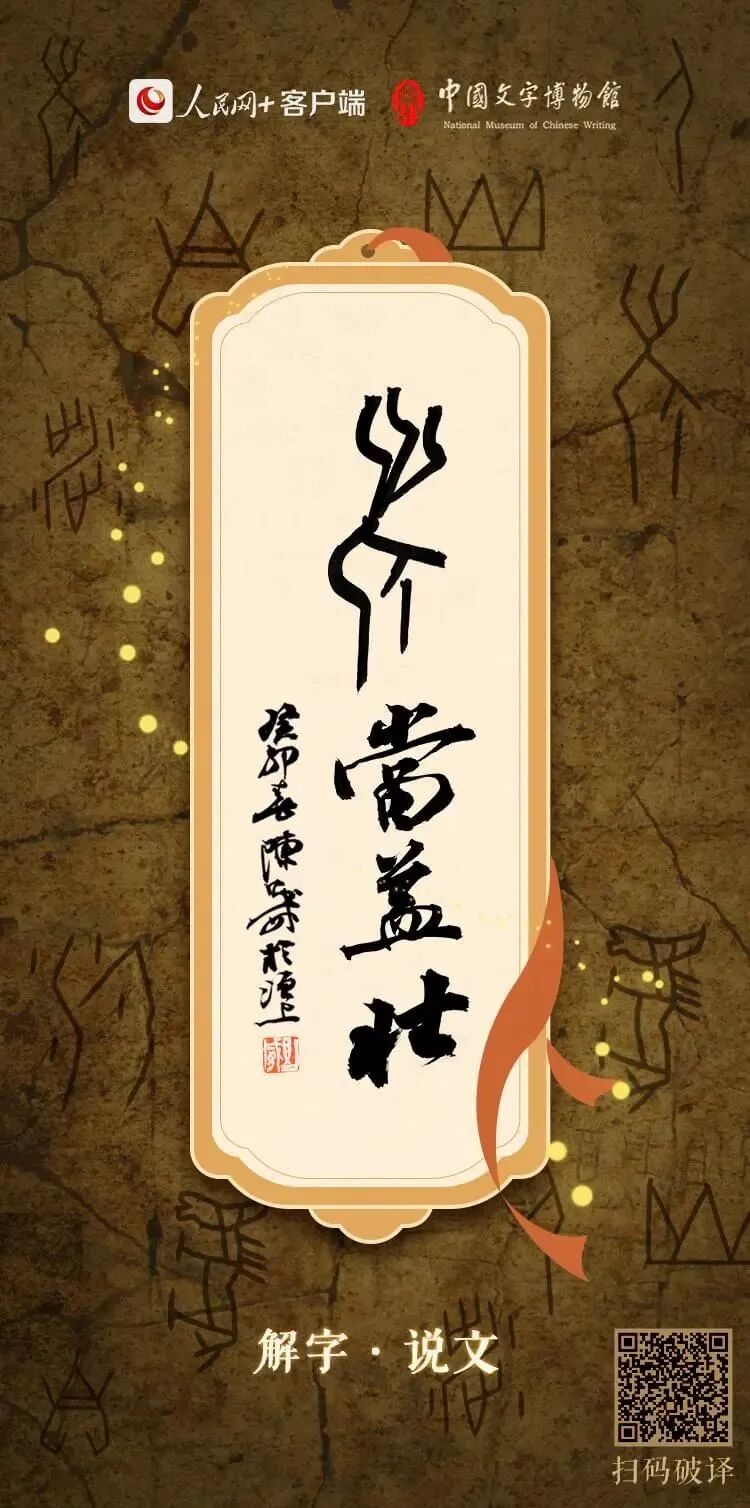 人民网+客户端
中國文字博物館
National Museum of Chinese Writing
老當益壯
癸卯春陳
於洹上
解字·说文
扫码破译